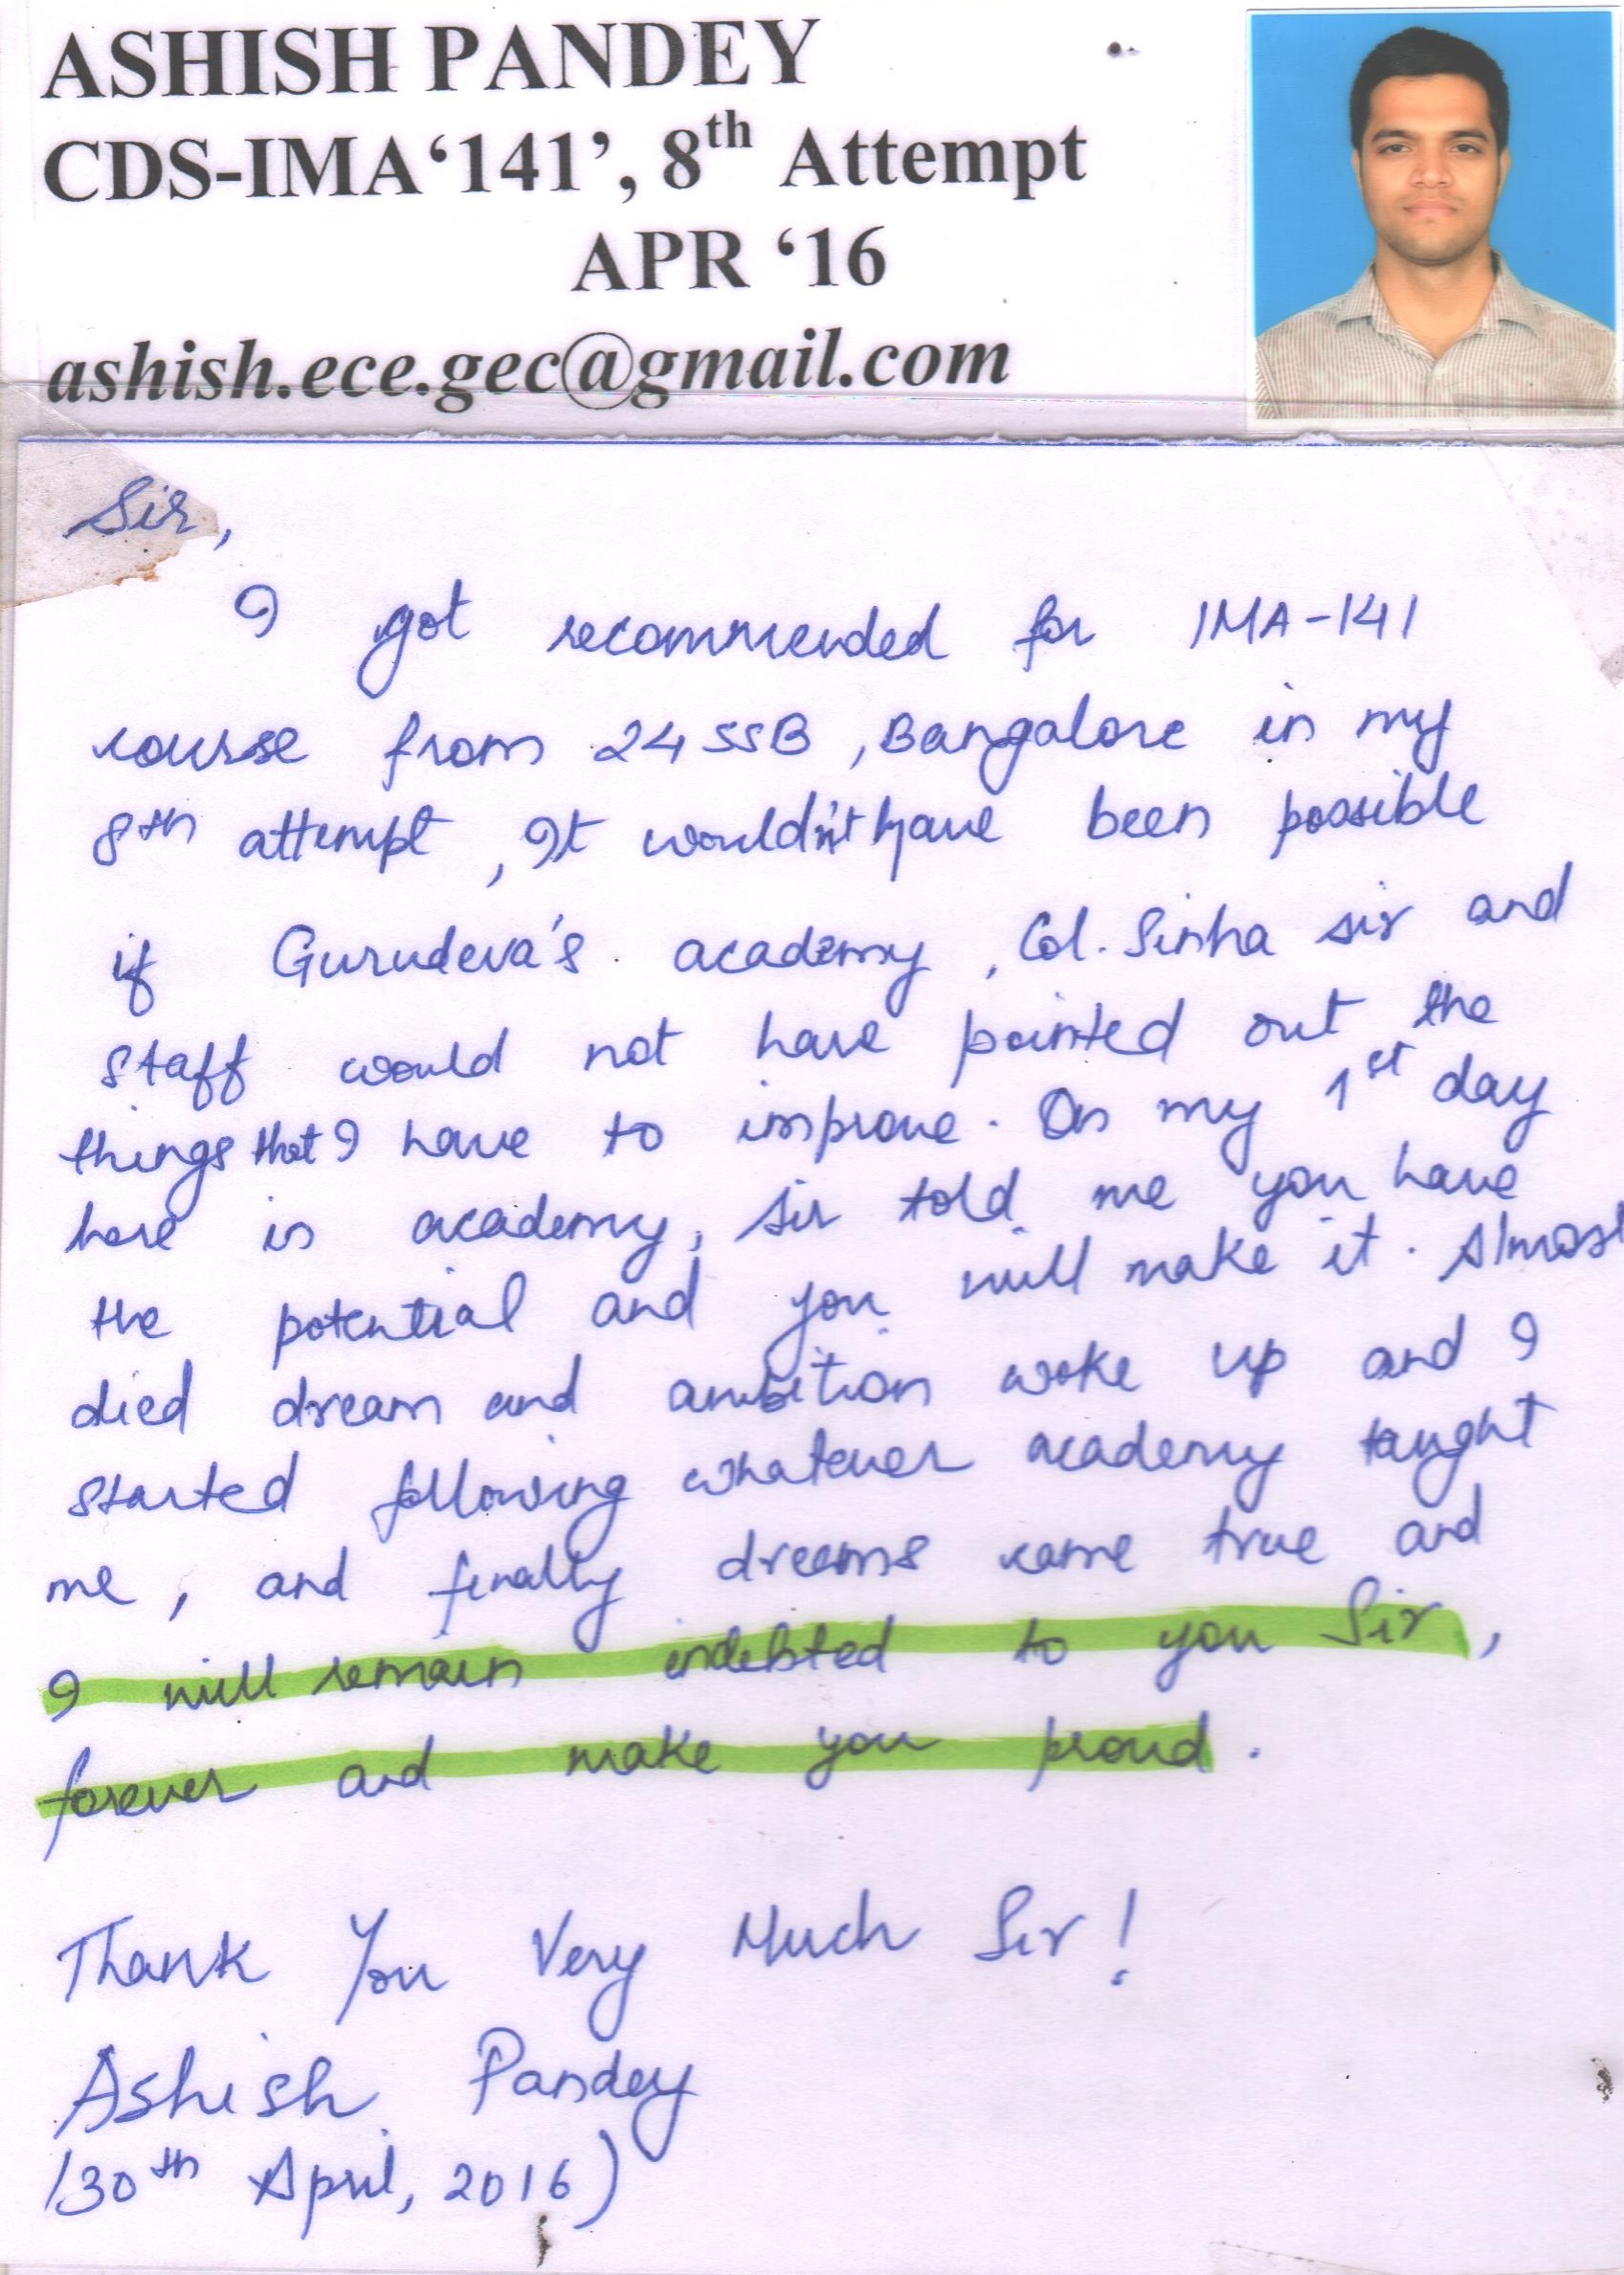 ASHISH PANDEY
CDS-IMA‘141’, 8th Attempt
APR ‘16
ashish.ece.gec@gmail.com
Sir,
I got recommended for IMA-141
course from 24 SSB, Bangalore in my
8th attempt, It wouldn't have been possible
if Gurudeva's academy, Col. Sinha sir and
staff would not have pointed out the
things that I have to improve. On my 1st day
here in academy, sir told me you have
the potential and you will make it. Almost
died dream and ambition woke up and I
started following whatever academy taught
me, and finally dreams came true and
I will remain indebted to you Sir,
forever and make you proud.
Thank You Very Much Sir!
Ashish Pandey
(30th April, 2016)